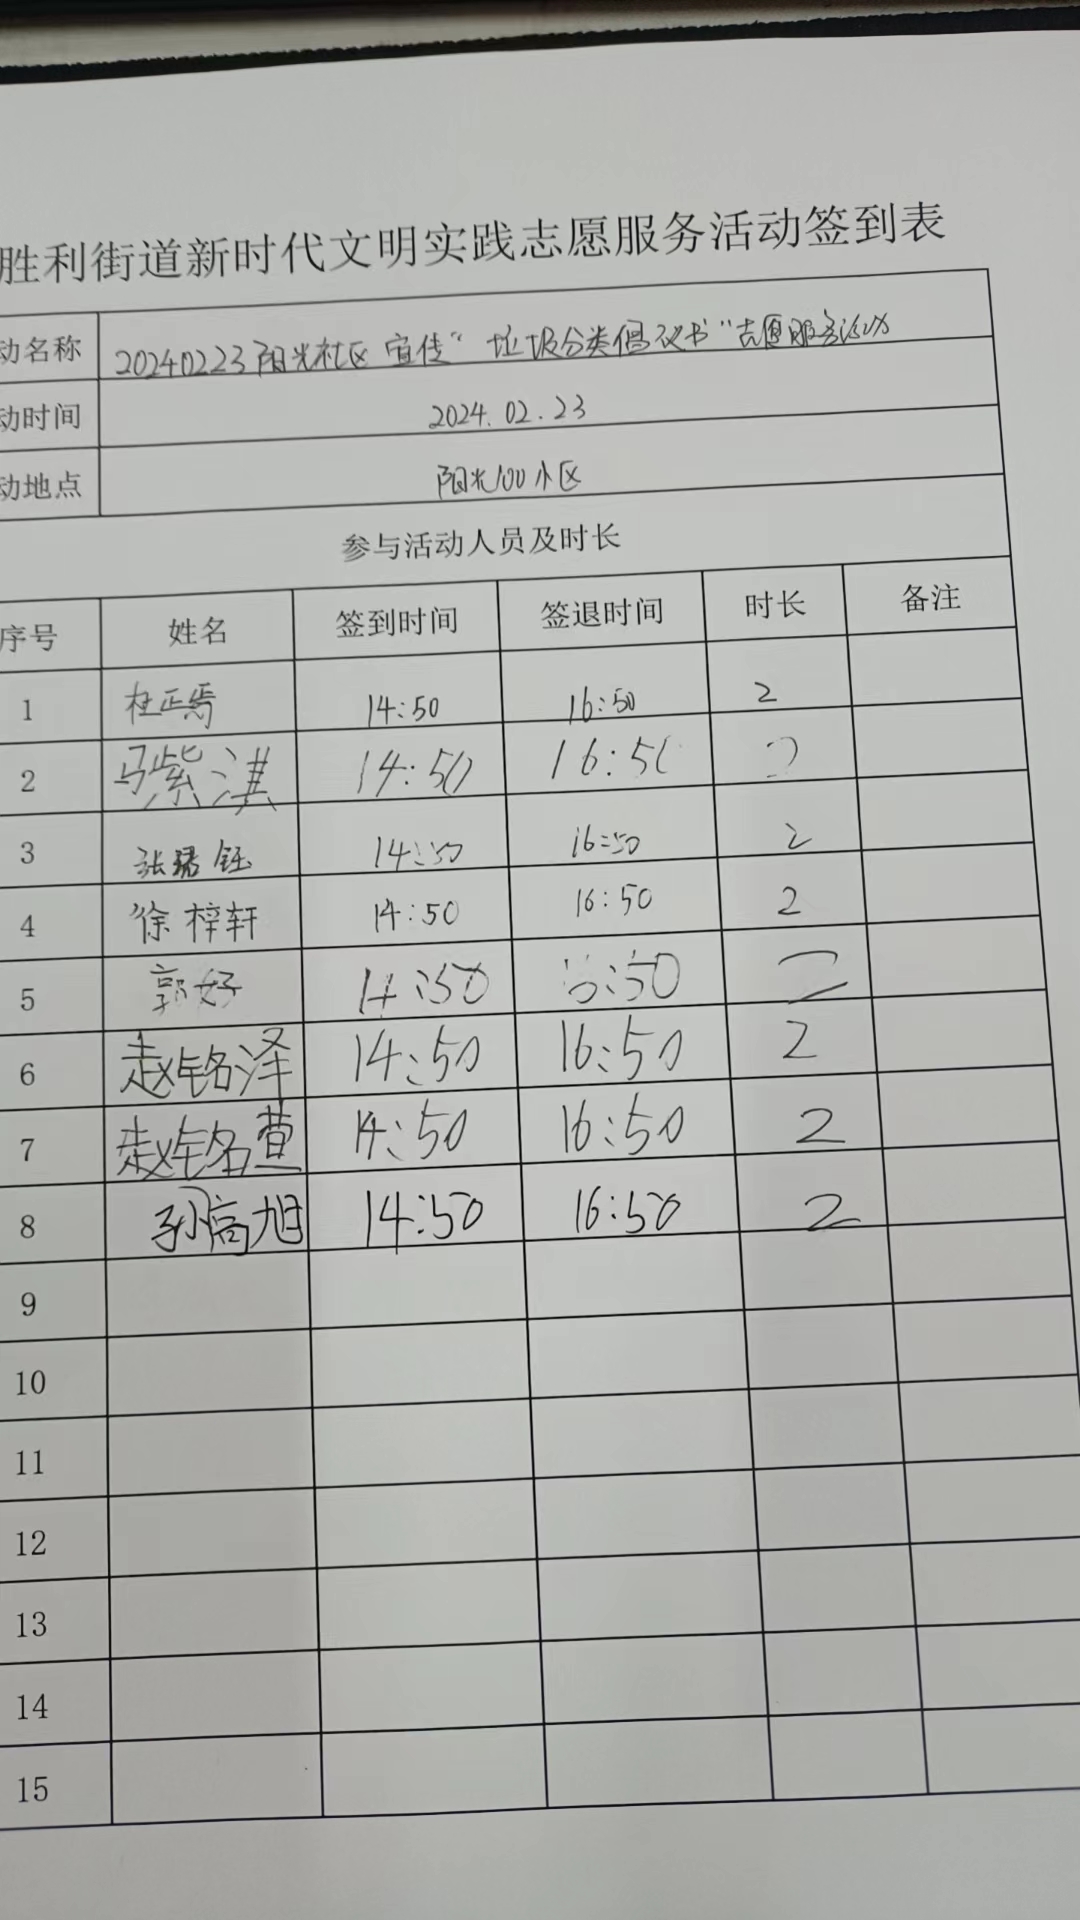 胜利街道新时代文明实践志愿服务活动签到表
动名称 20240223阳光社区宣传“垃圾分类倡议书”志愿服务活动
动时间 2024.02.23
动地点 阳光100小区
参与活动人员及时长
序号 姓名 签到时间 签退时间 时长 备注
1 杜正焉 14:50 16:50 2
2 马紫淇 14:50 16:50 2
3 张珺钰 14:50 16:50 2
4 徐梓轩 14:50 16:50 2
5 郭好 14:50 16:50 2
6 赵铭泽 14:50 16:50 2
7 赵铭萱 14:50 16:50 2
8 孙高旭 14:50 16:50 2
9
10
11
12
13
14
15